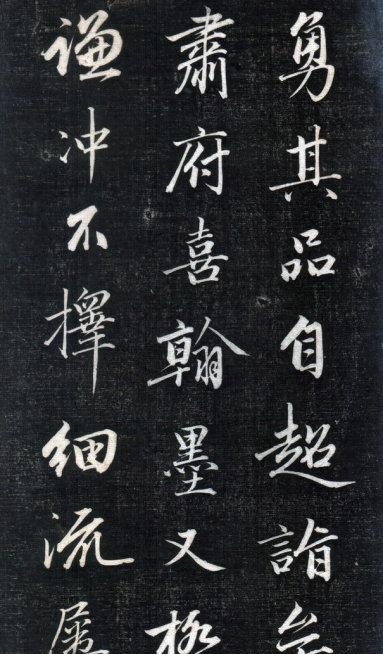 勇其品自超詣
肅府喜翰墨又極
謙沖不擇細流屬